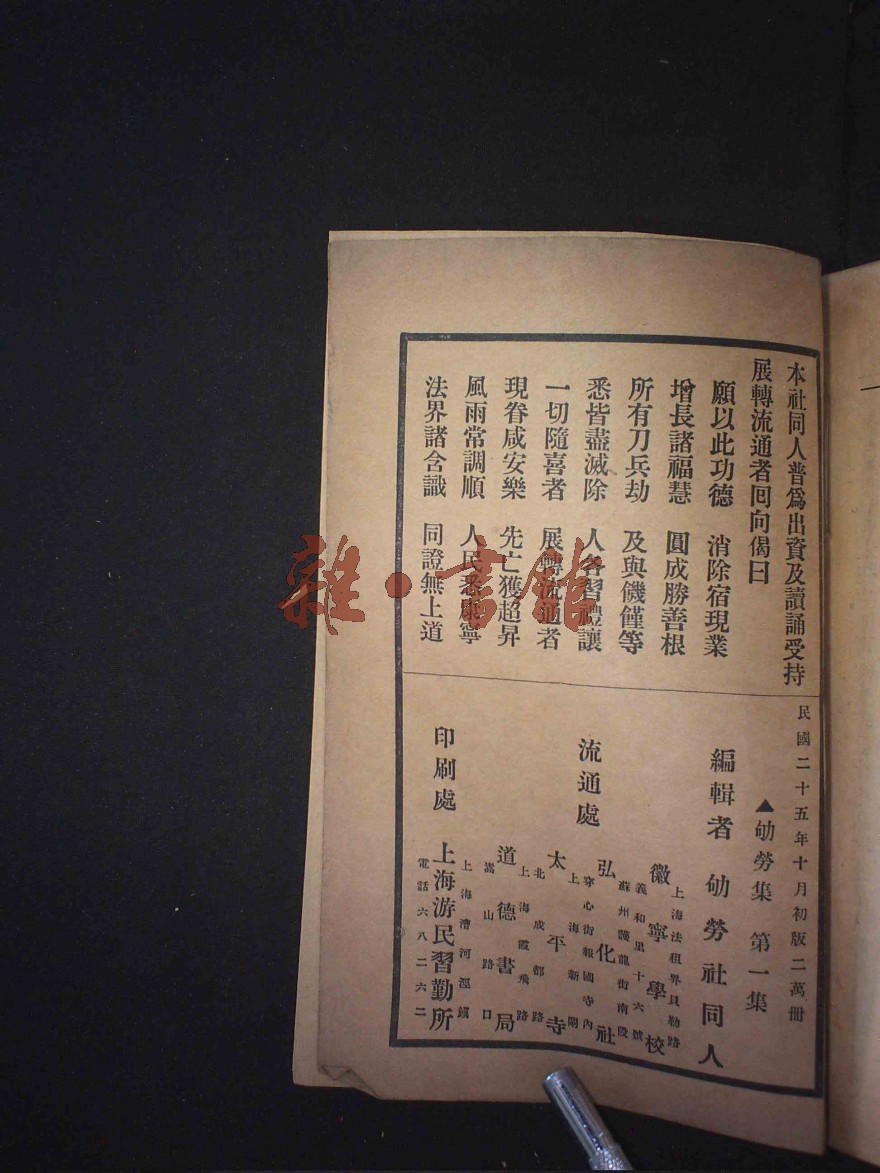 本社同人普爲出資及讀誦受持
展轉流通者回向偈曰
願以此功德 消除宿現業
增長諸福慧 圓成勝善根
所有刀兵劫 及與饑饉等
悉皆盡滅除 人各習禮讓
一切隨喜者 展轉流通者
現眷咸安樂 先亡獲超昇
風雨常調順 人民悉康寧
法界諸含識 同證無上道
民國二十五年十月初版二萬冊
▲劬勞集 第一集
編輯者 劬勞社同人
流通處
上海法租界貝勒路
徽寧學校
義和里十六號
蘇州護龍街南段
弘化社
穿心街報國寺內
上海新閘
太平寺
北成都路
上海霞飛路
道德書局
嵩山路口
印刷處
上海漕河涇鎮
上海游民習勤所
電話六八二六二
雜·書館